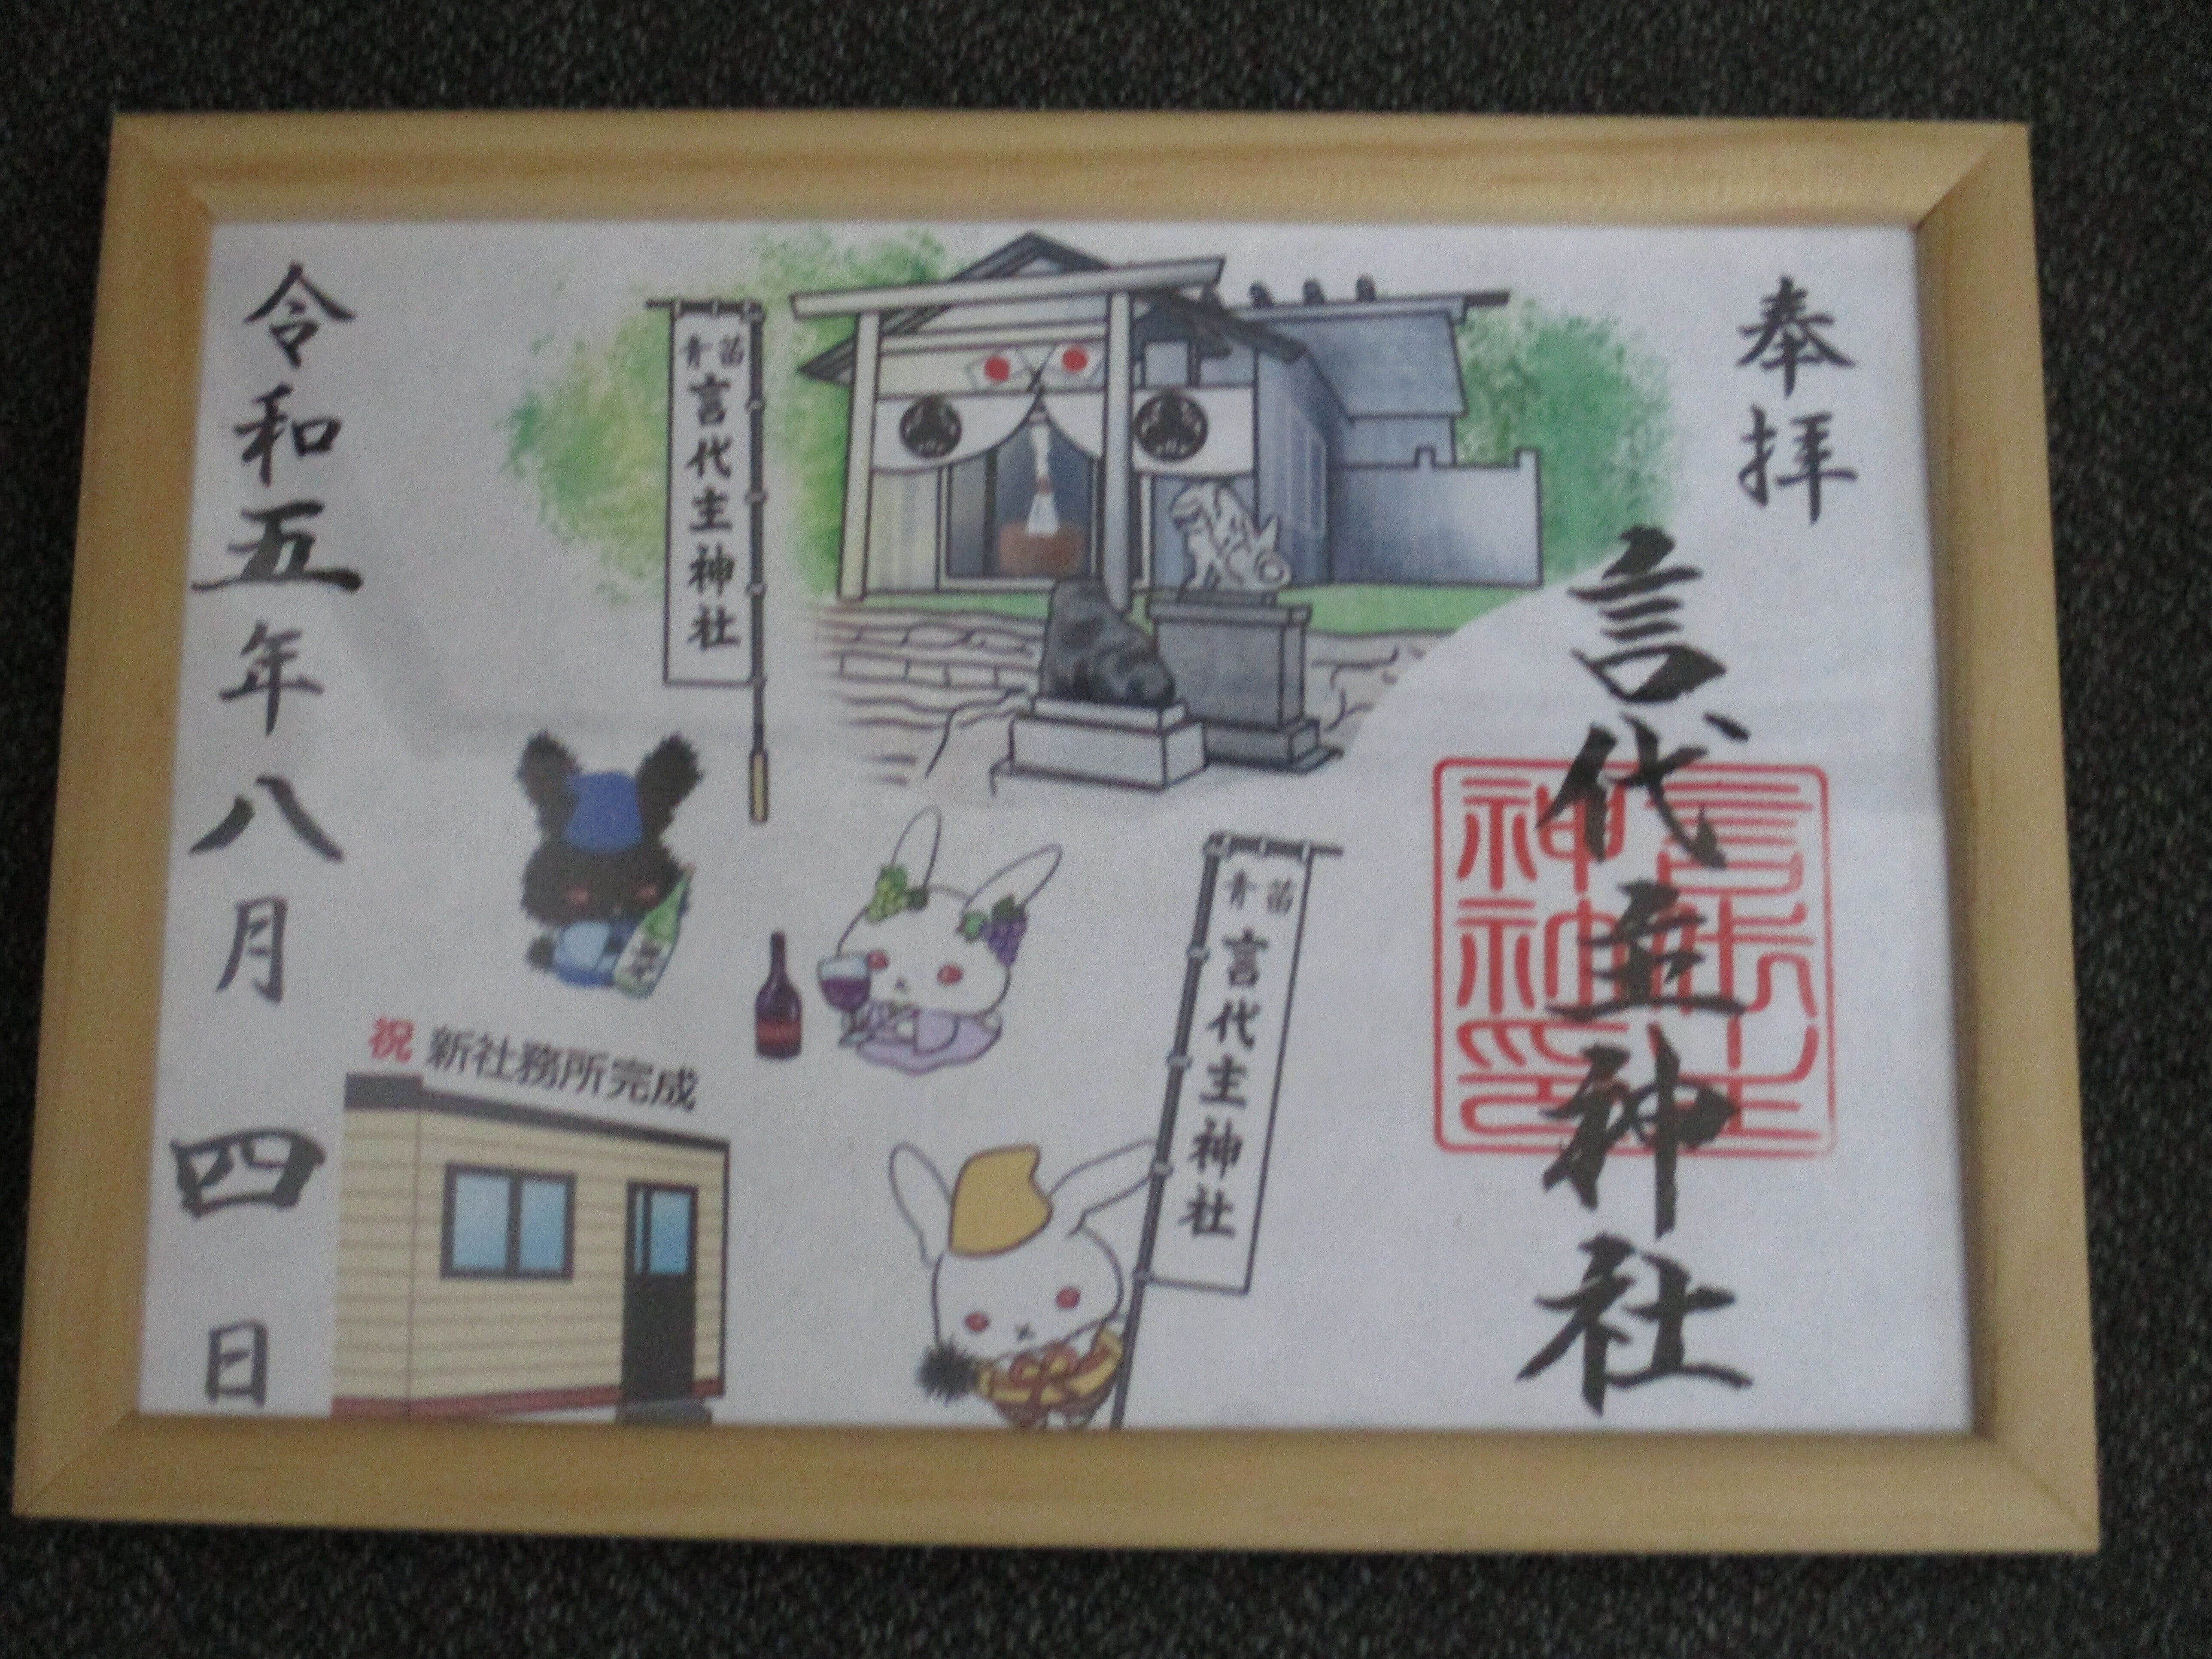 奉拝
言代主神社
言代主
神社
神
印
青苗
言代主神社
青苗
言代主神社
祝 新社務所完成
令和五年八月四日